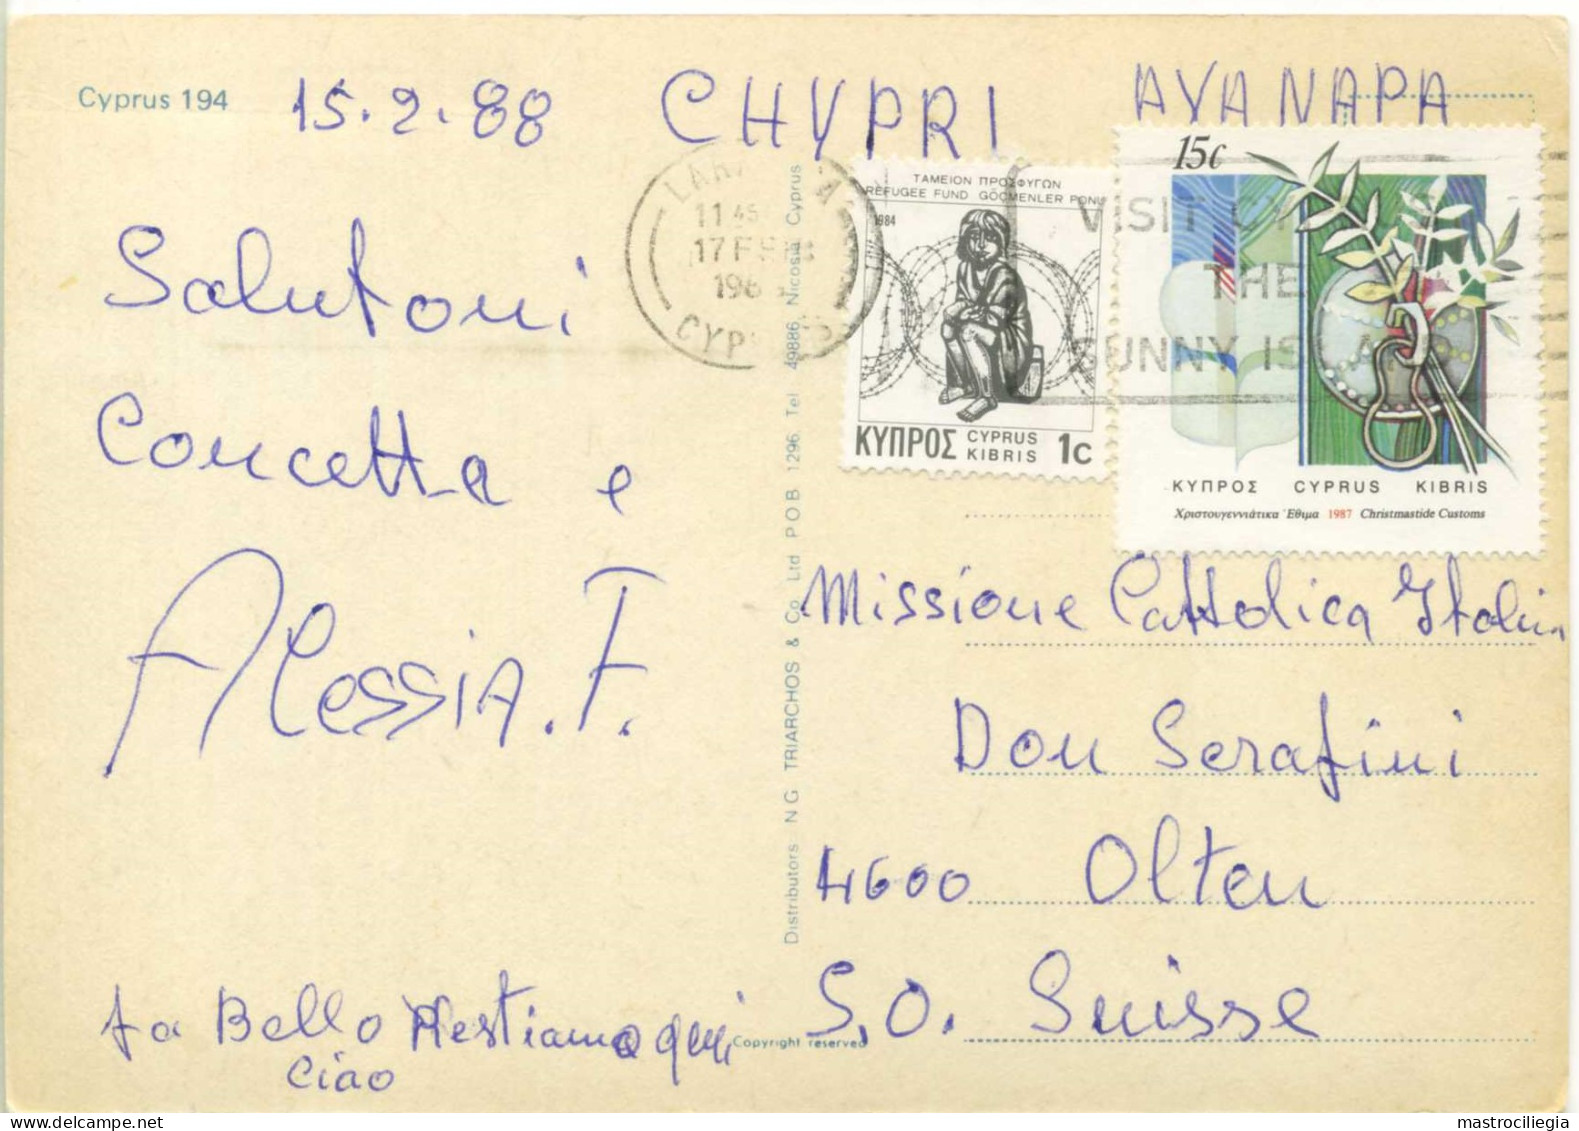 Cyprus 194
15.2.88 CHYPRI AYA NAPA
Salutoni
Concetta e
Alessia. F.
fa Bello Restiamo qui
ciao
Distributors N G TRIARCHOS & Co Ltd P O B 1296 Tel 49886 Nicosia Cyprus
Copyright reserved
11 45
17 FEB
CYPRUS
ΤΑΜΕΙΟΝ ΠΡΟΣΦΥΓΩΝ
REFUGEE FUND GÖÇMENLER FONU
1984
ΚΥΠΡΟΣ CYPRUS KIBRIS 1c
VISIT CYPRUS
THE
SUNNY ISLAND
15c
ΚΥΠΡΟΣ CYPRUS KIBRIS
Χριστουγεννιάτικα Ἔθιμα 1987 Christmastide Customs
Missione Cattolica Italian
Don Serafini
4600 Olten
S.O. Suisse
mastrociliegia